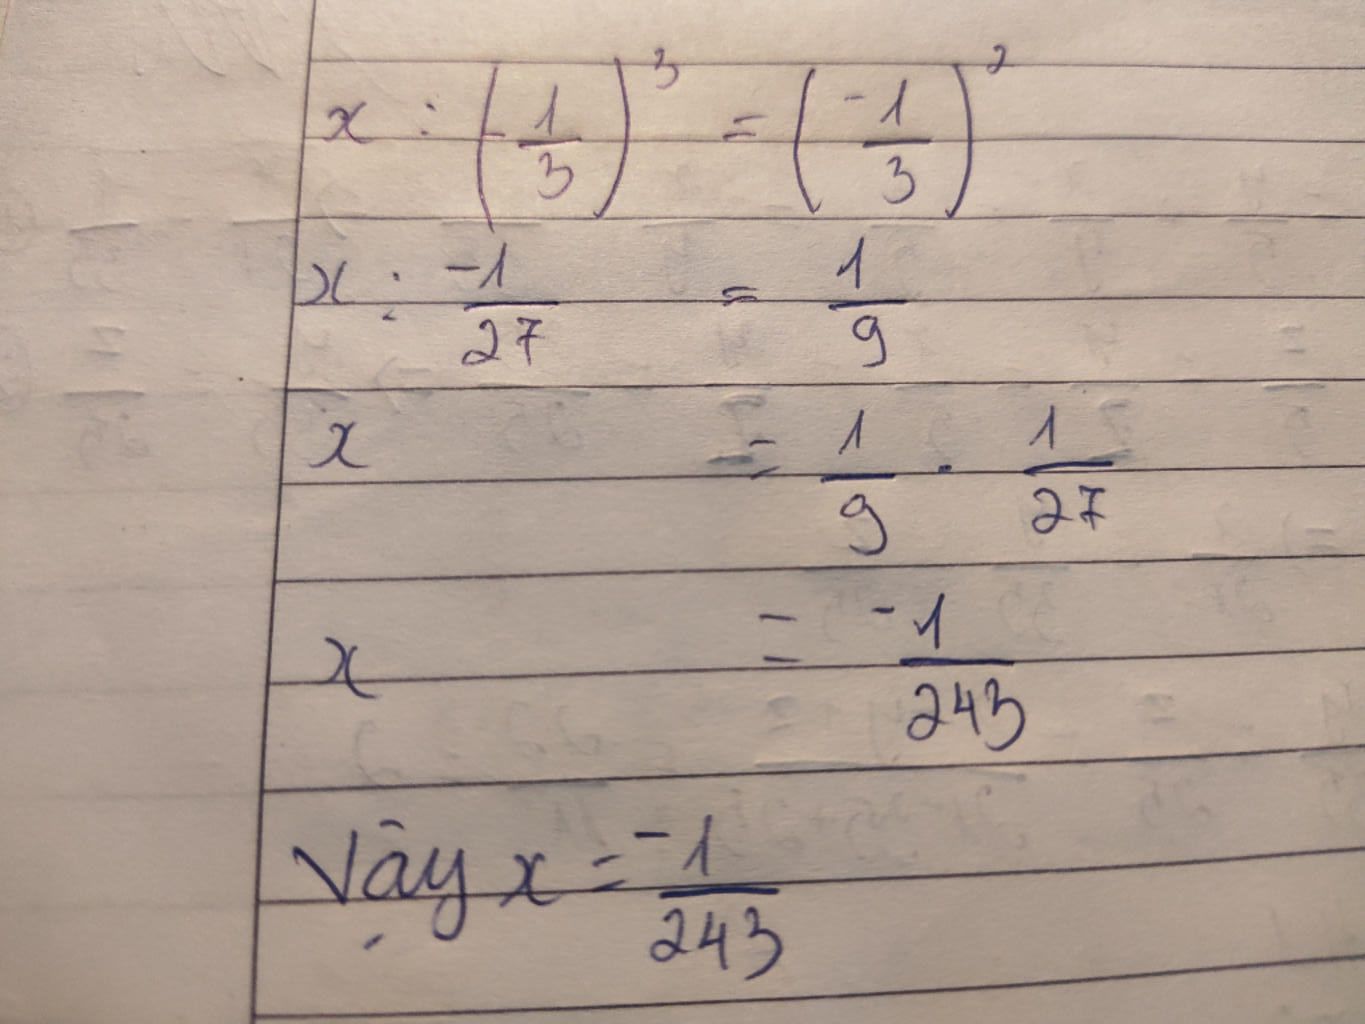 x : (-1/3)³ = (-1/3)²
x : -1/27 = 1/9
x = 1/9 . 1/27
x = -1/243
Vậy x = -1/243